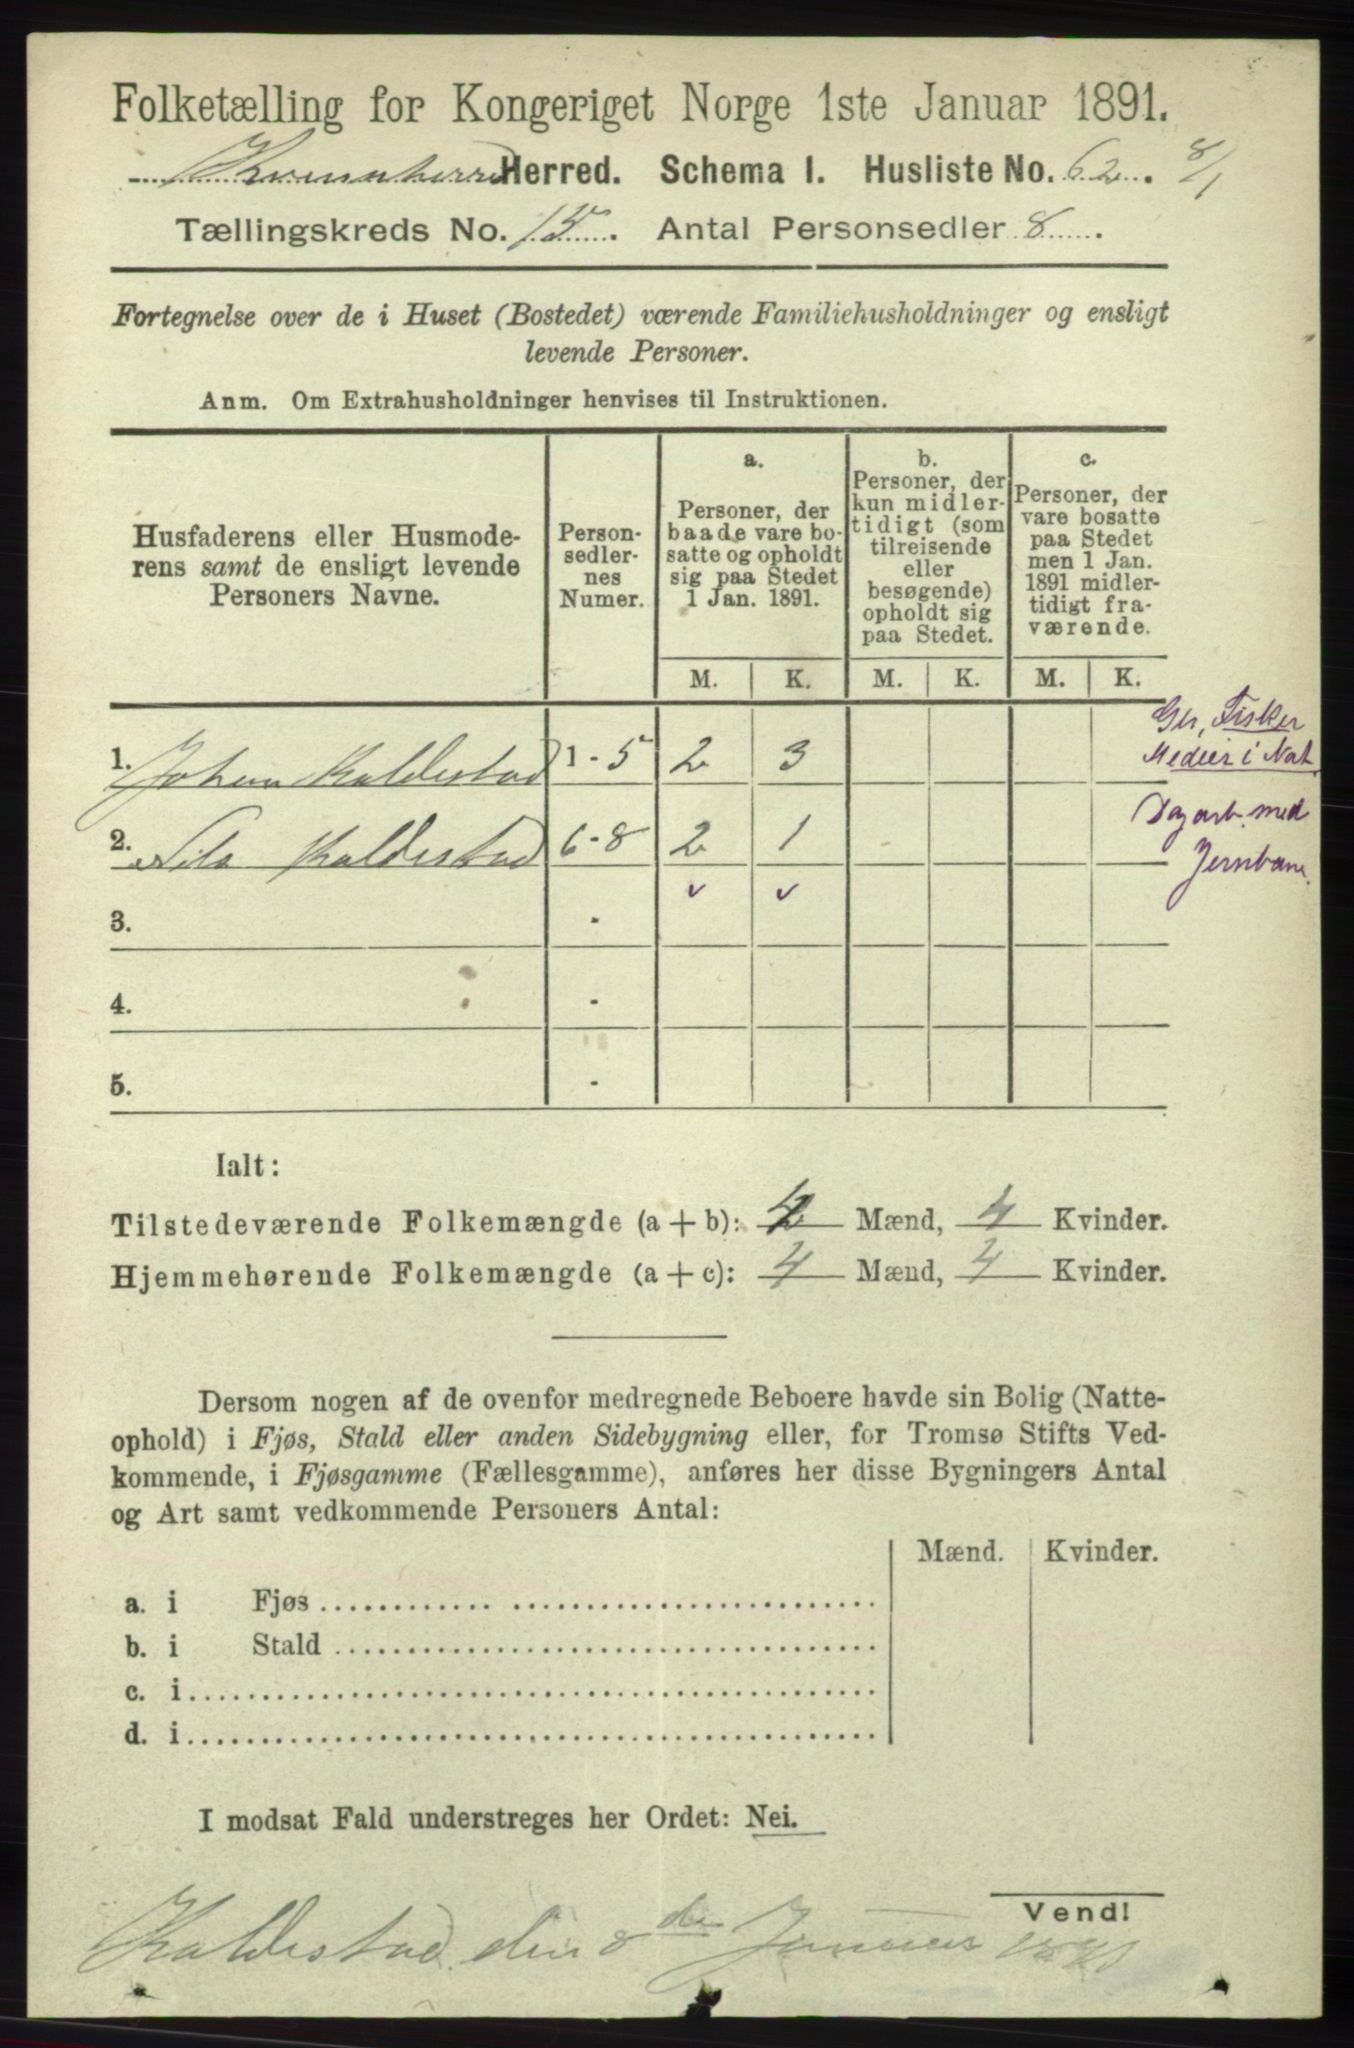 Folketælling for Kongeriget Norge 1ste Januar 1891.
Kvinnherred Herred. Schema I. Husliste No. 62. 8/1
Tællingskreds No. 15. Antal Personsedler 8.
Fortegnelse over de i Huset (Bostedet) værende Familiehusholdninger og ensligt
levende Personer.
Anm. Om Extrahusholdninger henvises til Instruktionen.
Husfaderens eller Husmode-
rens samt de ensligt levende
Personers Navne.
Person-
sedler-
nes
Numer.
a.
Personer, der
baade vare bo-
satte og opholdt
sig paa Stedet
1 Jan. 1891.
b.
Personer, der
kun midler-
tidigt (som
tilreisende
eller
besøgende)
opholdt sig
paa Stedet.
c.
Personer, der
vare bosatte
paa Stedet
men 1 Jan.
1891 midler-
tidigt fra-
værende.
M. K. M. K. M. K.
1. Johan Kaldestad 1-5 2 3
Fisker
i Not
2. Nils Kaldestad 6-8 2 1
Dagarb. med
Jernbane.
3. -
4. -
5. -
Ialt:
Tilstedeværende Folkemængde (a + b): 4 Mænd, 4 Kvinder.
Hjemmehørende Folkemængde (a + c): 4 Mænd, 4 Kvinder.
Dersom nogen af de ovenfor medregnede Beboere havde sin Bolig (Natte-
ophold) i Fjøs, Stald eller anden Sidebygning eller, for Tromsø Stifts Ved-
kommende, i Fjøsgamme (Fællesgamme), anføres her disse Bygningers Antal
og Art samt vedkommende Personers Antal:
Mænd. Kvinder.
a. i Fjøs
b. i Stald
c. i
d. i
I modsat Fald understreges her Ordet: Nei.
Vend!
Kaldestad den 8de Januar 1891